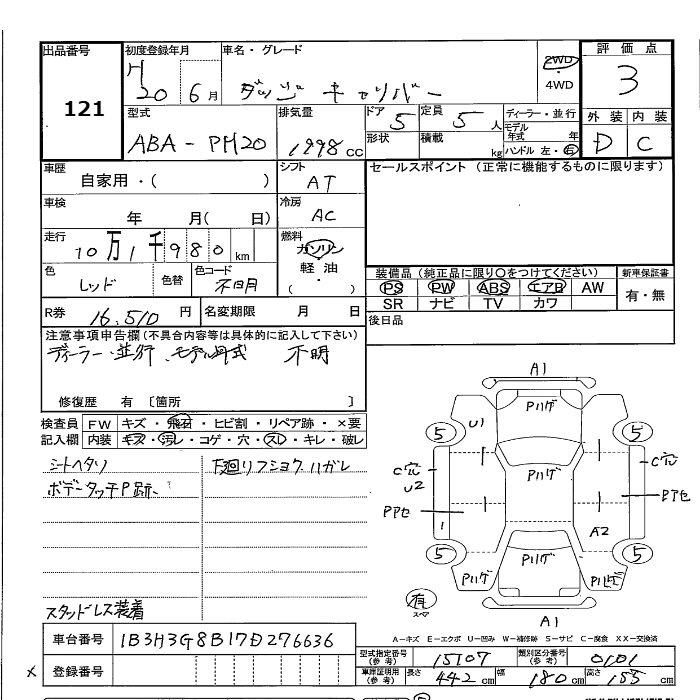 出品番号 初度登録年月 車名・グレード 評価点
121 H 20 6月 ダッジ キャリバー 2WD ・ 4WD 3
型式 排気量 ドア 5 定員 5人 ディーラー・並行 外装 内装
ABA-PH20 1998cc 形状 積載 kg モデル年式 年 D C
ハンドル 左・右
車歴 シフト セールスポイント (正常に機能するものに限ります)
自家用・( ) AT
車検 年 月( 日) 冷房 AC
走行 10万1千980km 燃料 ガソリン ・ 軽油 ・ ( )
色 レッド 色替 色コード 不明
装備品 (純正品に限り○をつけてください) 新車保証書
PS PW ABS エアB AW 有・無
SR ナビ TV カワ
R券 16,510円 名変期限 月 日 後日品
注意事項申告欄 (不具合内容等は具体的に記入して下さい)
ディーラー・並行、モデル年式 不明
修復歴 有 〔箇所 〕
検査員記入欄 FW キズ・飛石・ヒビ割・リペア跡・×要
内装 キズ・汚レ・コゲ・穴・スレ・キレ・破レ
シートヘタリ 下廻リフショクハガレ
ボデータッチP跡、
スタッドレス装着
A1
Pハゲ
U1
5 5
C穴 U2 Pハゲ C穴
Pアセ Pアセ
1 A2
5 5
Pハゲ Pハゲ Pハゲ
有
スペア
A1
A-キズ E-エクボ U-凹み W-補修跡 S-サビ C-腐食 XX-交換済
車台番号 1B3H3G8B17D276636
型式指定番号(参考) 15107 類別区分番号(参考) 0101
× 登録番号
車庫証明用(参考) 長さ 442cm 幅 180cm 高さ 155cm